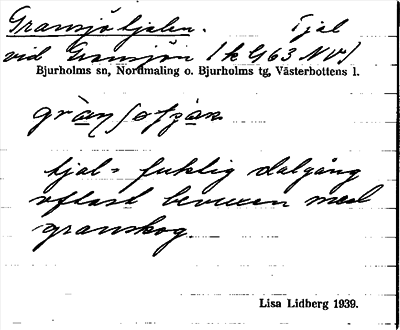 Gransjötjalen. Tjal
vid Gransjön (k G163 NV)
Bjurholms sn, Nordmaling o. Bjurholms tg, Västerbottens l.
tjal = fuktig dalgång
oftast bevuxen med
granskog.
Lisa Lidberg 1939.